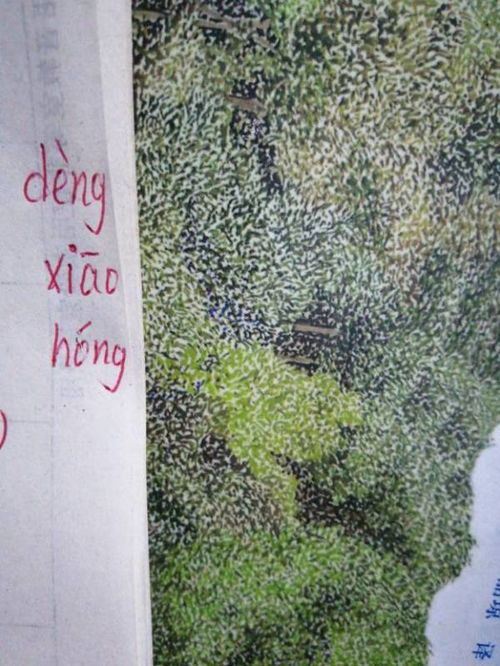 dèng
xiāo
hóng
)